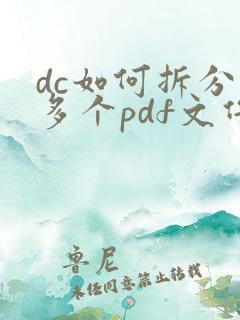 dc如何拆分
多个pdf文件
鲁尼
未经同意禁止转载